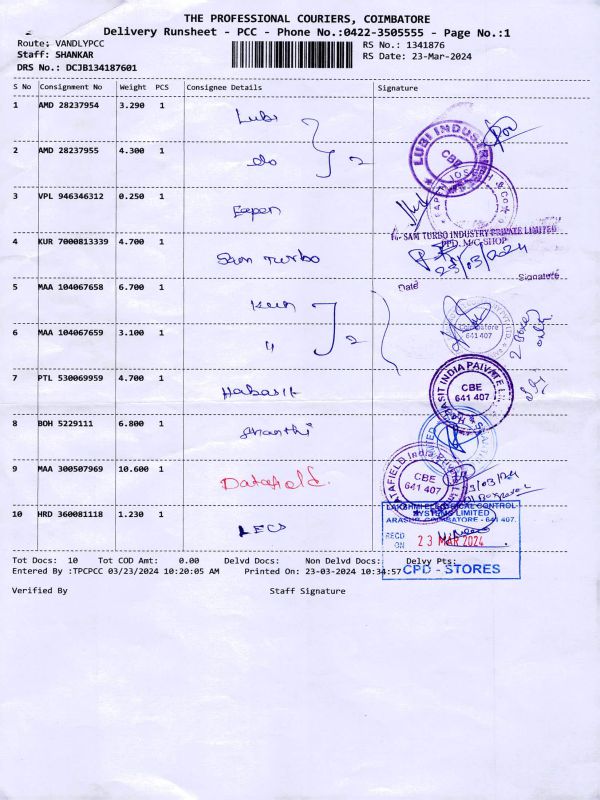 THE PROFESSIONAL COURIERS, COIMBATORE
Delivery Runsheet - PCC - Phone No.:0422-3505555 - Page No.:1
Route: VANDLYPCC RS No.: 1341876
Staff: SHANKAR RS Date: 23-Mar-2024
DRS No.: DCJB134187601
S No Consignment No Weight PCS Consignee Details Signature
1 AMD 28237954 3.290 1 Lubi
LUBI INDUSTR
CBE
2 AMD 28237955 4.300 1 do 2
3 VPL 946346312 0.250 1 Eapen
SAM TURBO INDUSTRY PRIVATE LIMITED
PPD. M/C SHOP
4 KUR 7000813339 4.700 1 Sam Turbo
23/03/2024
Date Signature
5 MAA 104067658 6.700 1
Coimbatore
641 407
6 MAA 104067659 3.100 1 " 2
2 Boxes only.
7 PTL 530069959 4.700 1 Habasit
HABASIT INDIA PAIVATE LI
CBE
641 407
8 BOH 5229111 6.800 1 Ananthi
9 MAA 300507969 10.600 1 Datafield.
DATAFIELD India Pri
CBE
641 407
10 HRD 360081118 1.230 1 LECS
LAKSHMI ELECTRICAL CONTROL
SYSTEMS LIMITED
ARASUR, COIMBATORE - 641 407.
RECD
ON 23 MAR 2024
CPD - STORES
Tot Docs: 10 Tot COD Amt: 0.00 Delvd Docs: Non Delvd Docs: Delvy Pts:
Entered By :TPCPCC 03/23/2024 10:20:05 AM Printed On: 23-03-2024 10:34:57
Verified By Staff Signature